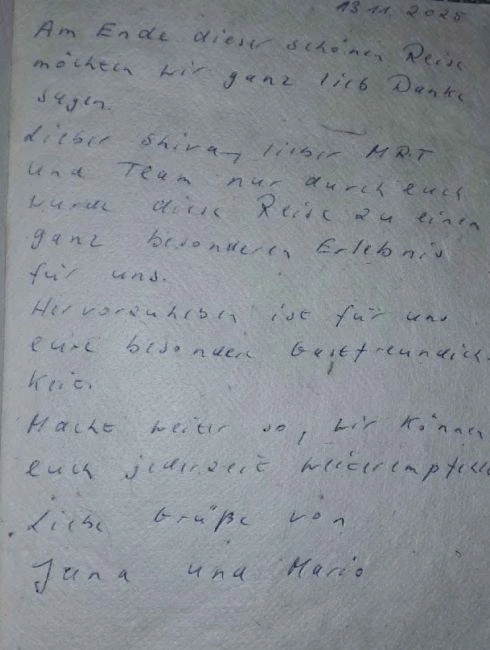 13.11.2025
Am Ende dieser schönen Reise
möchten wir ganz lieb Danke
sagen.
Lieber Shiva, lieber MRT
und Team nur durch euch
wurde diese Reise zu einen
ganz besonderen Erlebnis
für uns.
Hervorzuheben ist für uns
eure besondere Gastfreundlich-
keit.
Macht weiter so, wir können
euch jederzeit weiterempfehle
Liebe Grüße von
Jana und Mario